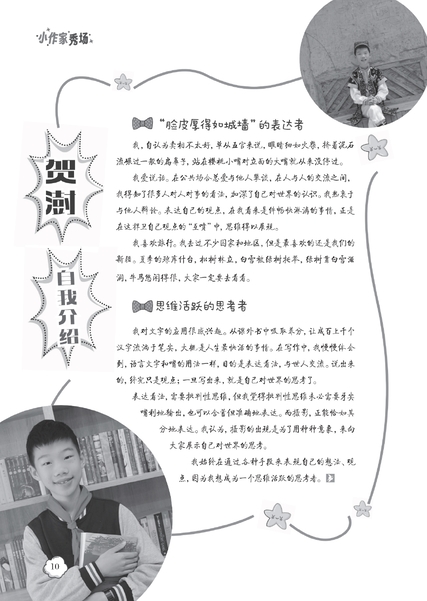 小作家秀场
贺澍
自我介绍
“脸皮厚得如城墙”的表达者
我,自认为长相不太好,单从五官来说,眼睛细如火柴,挎着泥石
流碾过一般的扁鼻子,站在樱桃小嘴对立面的大嘴就从来没停过。
我爱说话。在公共场合总爱与他人攀谈,在人与人的交流之间,
我得知了很多人对人对事的看法,加深了自己对世界的认识。我热衷于
与他人辩论。表达自己的观点,在我看来是件畅快淋漓的事情,正是
在这捍卫自己观点的“互喷”中,思维得以展现。
我喜欢旅行。我去过不少国家和地区,但是最喜欢的还是我们的
新疆。夏季的琼库什台,松树林立,白雪般绿树托举,绿树复白雪滋
润,牛马悠闲得很,大家一定要去看看。
思维活跃的思考者
我对文字的应用很感兴趣。从课外书中吸取养分,让成百上千个
汉字流淌于笔尖,大概是人生最快活的事情。在写作中,我慢慢体会
到,语言文字和嘴的用法一样,目的是表达看法,与世人交流。说出来
的,终究只是观点;一旦写出来,就是自己对世界的思考了。
表达看法,需要批判性思维,但我觉得批判性思维未必需要牙尖
嘴利地输出,也可以含蓄但准确地表达。而摄影,正能恰如其
分地表达。我认为,摄影的出现是为了用种种意象,来向
大家展示自己对世界的思考。
我始终在通过各种手段来表现自己的想法、观
点,因为我想成为一个思维活跃的思考者。
10